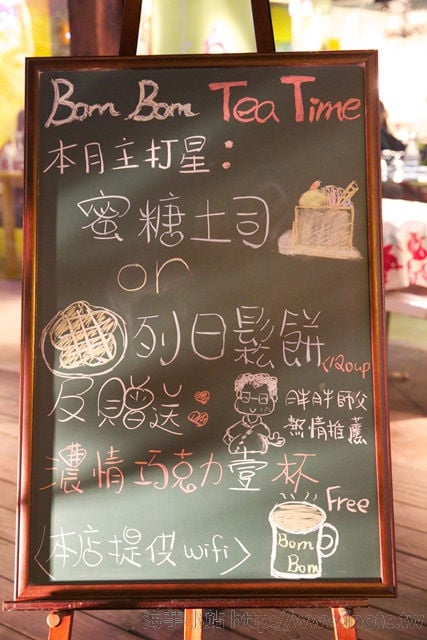 Bom Bom Tea Time
本月主打星：
蜜糖土司
or
列日鬆餅
<120up
及贈送
胖胖師父
熱情推薦
濃情巧克力壹杯
Free
Bom
Bom
<本店提供wifi>
海芋小站 http://www.inote.tw